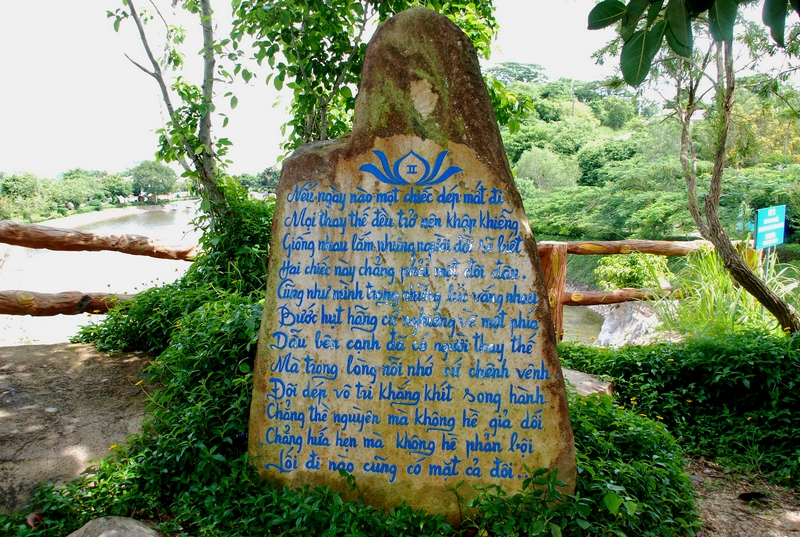 II
Nếu ngày nào một chiếc dép mất đi
Mọi thay thế đều trở nên khập khiễng
Giống nhau lắm nhưng người đời sẽ biết
Hai chiếc này chẳng phải một đôi đâu.
Cũng như mình trong những lúc vắng nhau
Bước hụt hẫng cứ nghiêng về một phía
Dẫu bên cạnh đã có người thay thế
Mà trong lòng nỗi nhớ cứ chênh vênh.
Đội dép vô tri khắng khít song hành
Chẳng thề nguyện mà không hề giả dối
Chẳng hứa hẹn mà không hề phản bội
Lối đi nào cũng có mặt cả đôi..